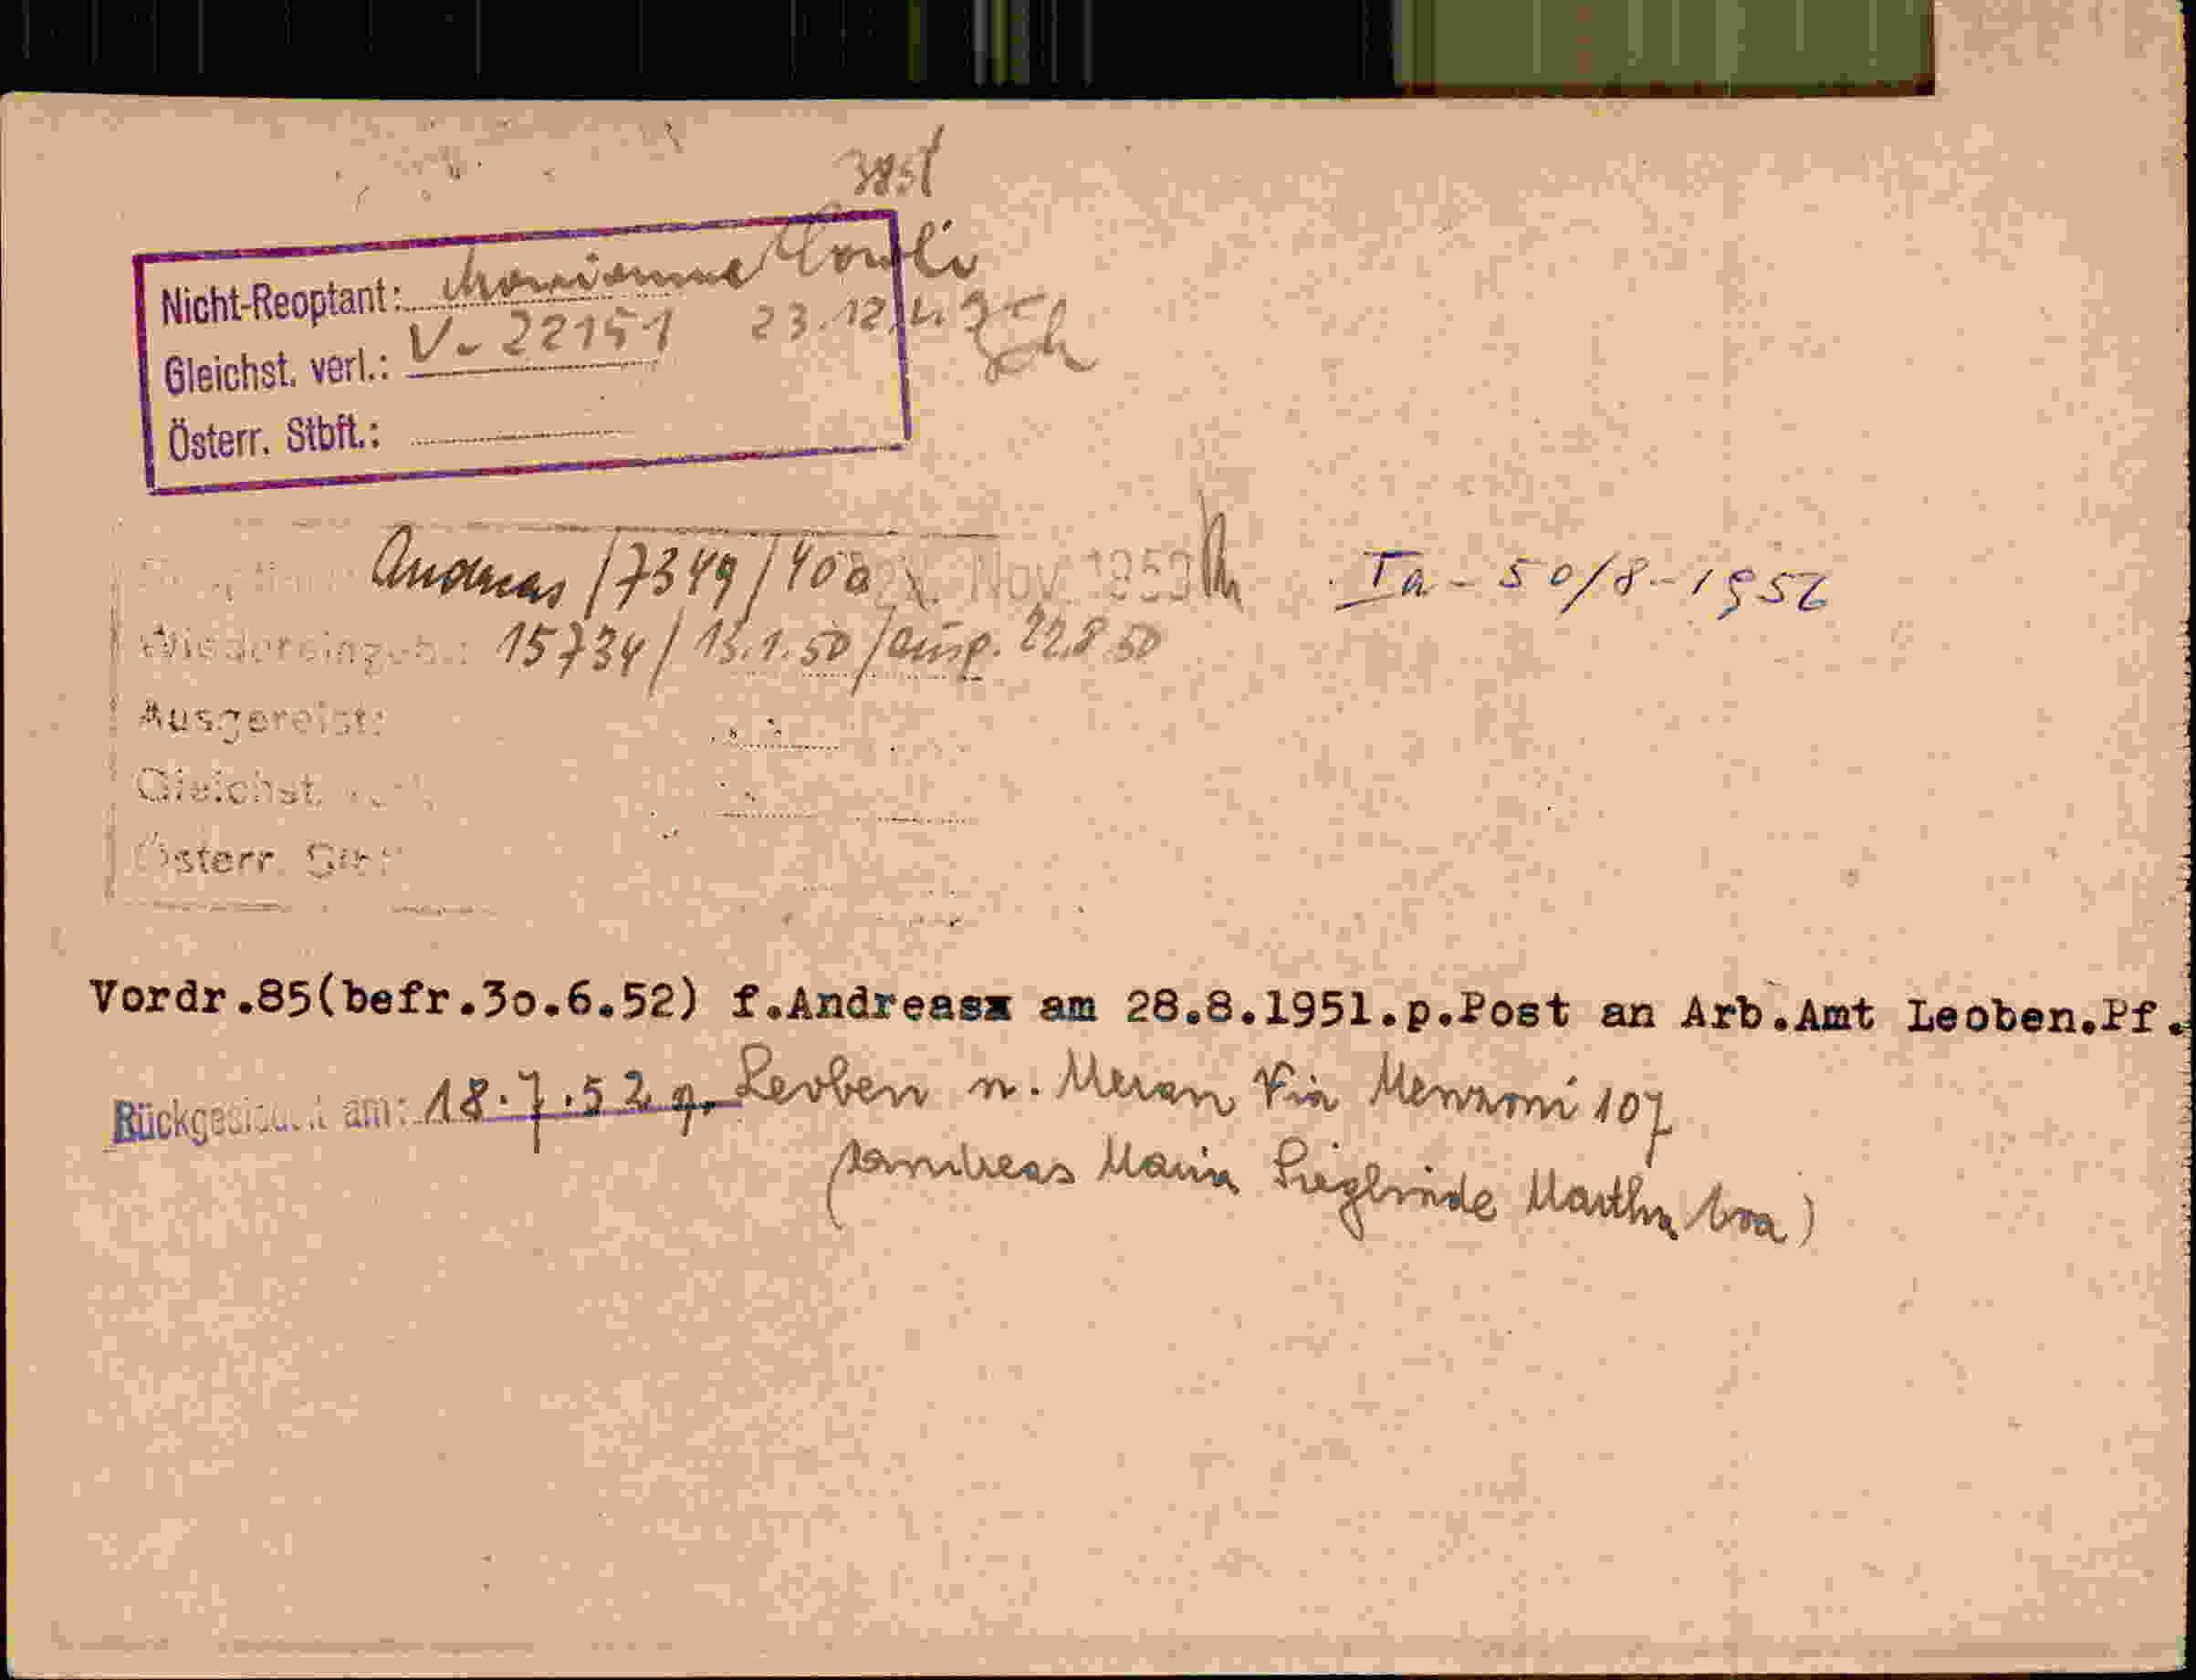 Nicht-Reoptant: Marianne
Gleichst. verl.: V. 22151 23.12.
Österr. Stbft.:
Andreas /7349/400 Nov. 1953
Ia - 50/8-1956
Wiedereingeb.: 15734/ 13.1.50 /ausg. 22.8.50
Ausgereist:
Gleichst.
Österr.
Vordr.85(befr.30.6.52) f.Andreasx am 28.8.1951.p.Post an Arb.Amt Leoben.Pf.
Rückgesiedelt am: 18.7.52 v. Leoben n. Meran Via Manzoni 107
(Andreas Maria Sieglinde Martha Eva)